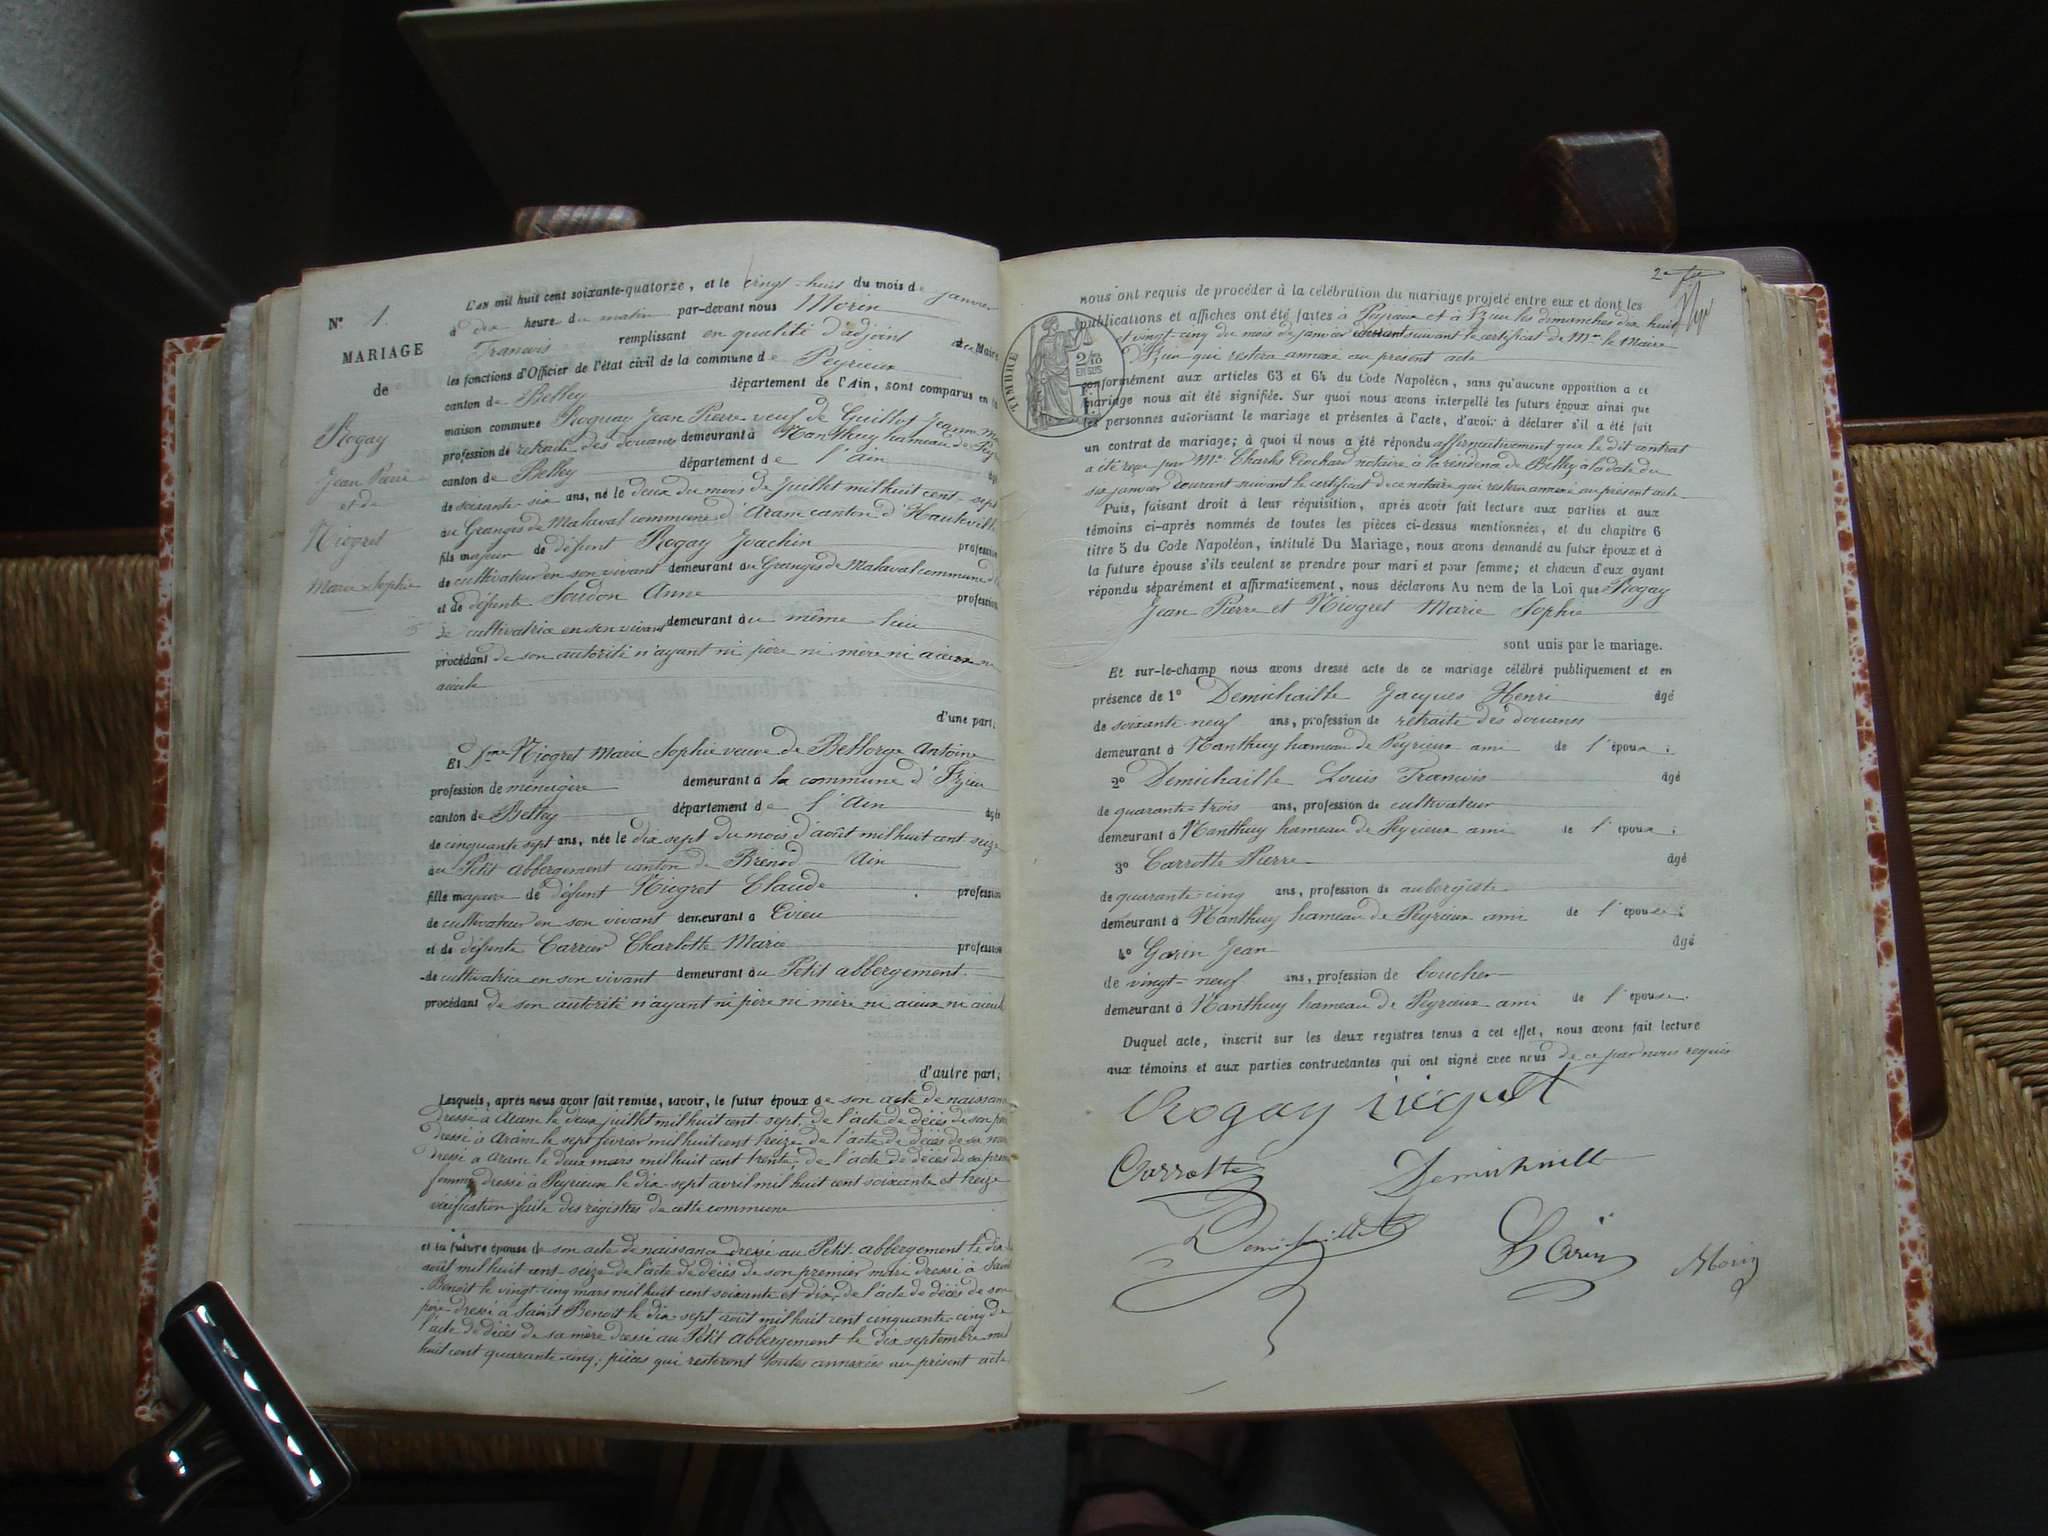 L'an mil huit cent soixante-quatorze, et le vingt-huit du mois de janvier
N° 1.
à dix heure du matin par-devant nous Morin
MARIAGE
François remplissant en qualité d'adjoint
de
les fonctions d'Officier de l'état civil de la commune de Peyrieux
canton de Belley département de l'Ain, sont comparus en la
Rogay
maison commune Roguay Jean Pierre veuf de Guillot Jeanne
Jean Pierre
profession de retraité des douanes demeurant à Nanthuy hameau de
et de
canton de Belley département de l'Ain
Niogret
de soixante-six ans, né le deux du mois de Juillet mil huit cent sept
Marie Sophie
au Granges de Malaval commune d'Aranc canton d'Hauteville
fils majeur de défunt Rogay Joachin profession
de cultivateur en son vivant demeurant au Granges de Malaval commune
et de défunte Soudon Anne profession
de cultivatrice en son vivant demeurant au même lieu
procédant de son autorité n'ayant ni père ni mère ni aïeux ni
aïeule
d'une part;
Et Niogret Marie Sophie veuve de Bellorge Antoine
profession de ménagère demeurant à la commune d'Izieu
canton de Belley département de l'Ain âgée
de cinquante sept ans, née le dix sept du mois d'août mil huit cent seize
au Petit abbergement canton de Brénod Ain
fille majeure de défunt Niogret Claude profession
de cultivateur en son vivant demeurant à Evieu
et de défunte Carrier Charlotte Marie profession
de cultivatrice en son vivant demeurant au Petit abbergement
procédant de son autorité n'ayant ni père ni mère ni aïeux ni aïeule
d'autre part;
Lesquels, après nous avoir fait remise, savoir, le futur époux de son acte de naissance
dressé à Aranc le deux juillet mil huit cent sept, de l'acte de décès de son père
dressé à Aranc le sept février mil huit cent treize de l'acte de décès de sa mère
dressé à Aranc le deux mars mil huit cent trente de l'acte de décès de sa première
femme dressé à Peyrieux le dix-sept avril mil huit cent soixante et treize
vérification faite des registres de cette commune
et la future épouse de son acte de naissance dressé au Petit abbergement le dix
août mil huit cent seize de l'acte de décès de son premier mari dressé à Saint
Benoit le vingt-cinq mars mil huit cent soixante et dix, de l'acte de décès de son
père dressé à Saint Benoit le dix sept août mil huit cent cinquante-cinq de
l'acte de décès de sa mère dressé au Petit abbergement le dix septembre mil
huit cent quarante-cinq; pièces qui resteront toutes annexées au présent acte
2e
nous ont requis de procéder à la célébration du mariage projeté entre eux et dont les
publications et affiches ont été faites à Peyrieux et à Izieu les dimanches dix huit
et vingt-cinq du mois de janvier courant suivant le certificat de Mr le Maire
d'Izieu qui restera annexé au présent acte
TIMBRE
2/10
EN SUS
conformément aux articles 63 et 64 du Code Napoléon, sans qu'aucune opposition à ce
mariage nous ait été signifiée. Sur quoi nous avons interpellé les futurs époux ainsi que
les personnes autorisant le mariage et présentes à l'acte, d'avoir à déclarer s'il a été fait
un contrat de mariage; à quoi il nous a été répondu affirmativement que le dit contrat
a été reçu par Me Charles Cochard notaire à la résidence de Belley à la date du
six janvier courant suivant le certificat de ce notaire qui restera annexé au présent acte
Puis, faisant droit à leur réquisition, après avoir fait lecture aux parties et aux
témoins ci-après nommés de toutes les pièces ci-dessus mentionnées, et du chapitre 6
titre 5 du Code Napoléon, intitulé Du Mariage, nous avons demandé au futur époux et à
la future épouse s'ils veulent se prendre pour mari et pour femme; et chacun d'eux ayant
répondu séparément et affirmativement, nous déclarons Au nom de la Loi que Rogay
Jean Pierre et Niogret Marie Sophie
sont unis par le mariage.
Et sur-le-champ nous avons dressé acte de ce mariage célébré publiquement et en
présence de 1° Demichaille Jacques Henri âgé
de soixante-neuf ans, profession de retraité des douanes
demeurant à Nanthuy hameau de Peyrieux ami de l'époux;
2° Demichaille Louis François âgé
de quarante-trois ans, profession de cultivateur
demeurant à Nanthuy hameau de Peyrieux ami de l'époux;
3° Carrotte Pierre âgé
de quarante-cinq ans, profession de aubergiste
demeurant à Nanthuy hameau de Peyrieux ami de l'épouse;
4° Garin Jean âgé
de vingt-neuf ans, profession de boucher
demeurant à Nanthuy hameau de Peyrieux ami de l'épouse.
Duquel acte, inscrit sur les deux registres tenus à cet effet, nous avons fait lecture
aux témoins et aux parties contractantes qui ont signé avec nous de ce par nous requis
Rogay
Carrotte Demichaille
Demichaille Garin Morin